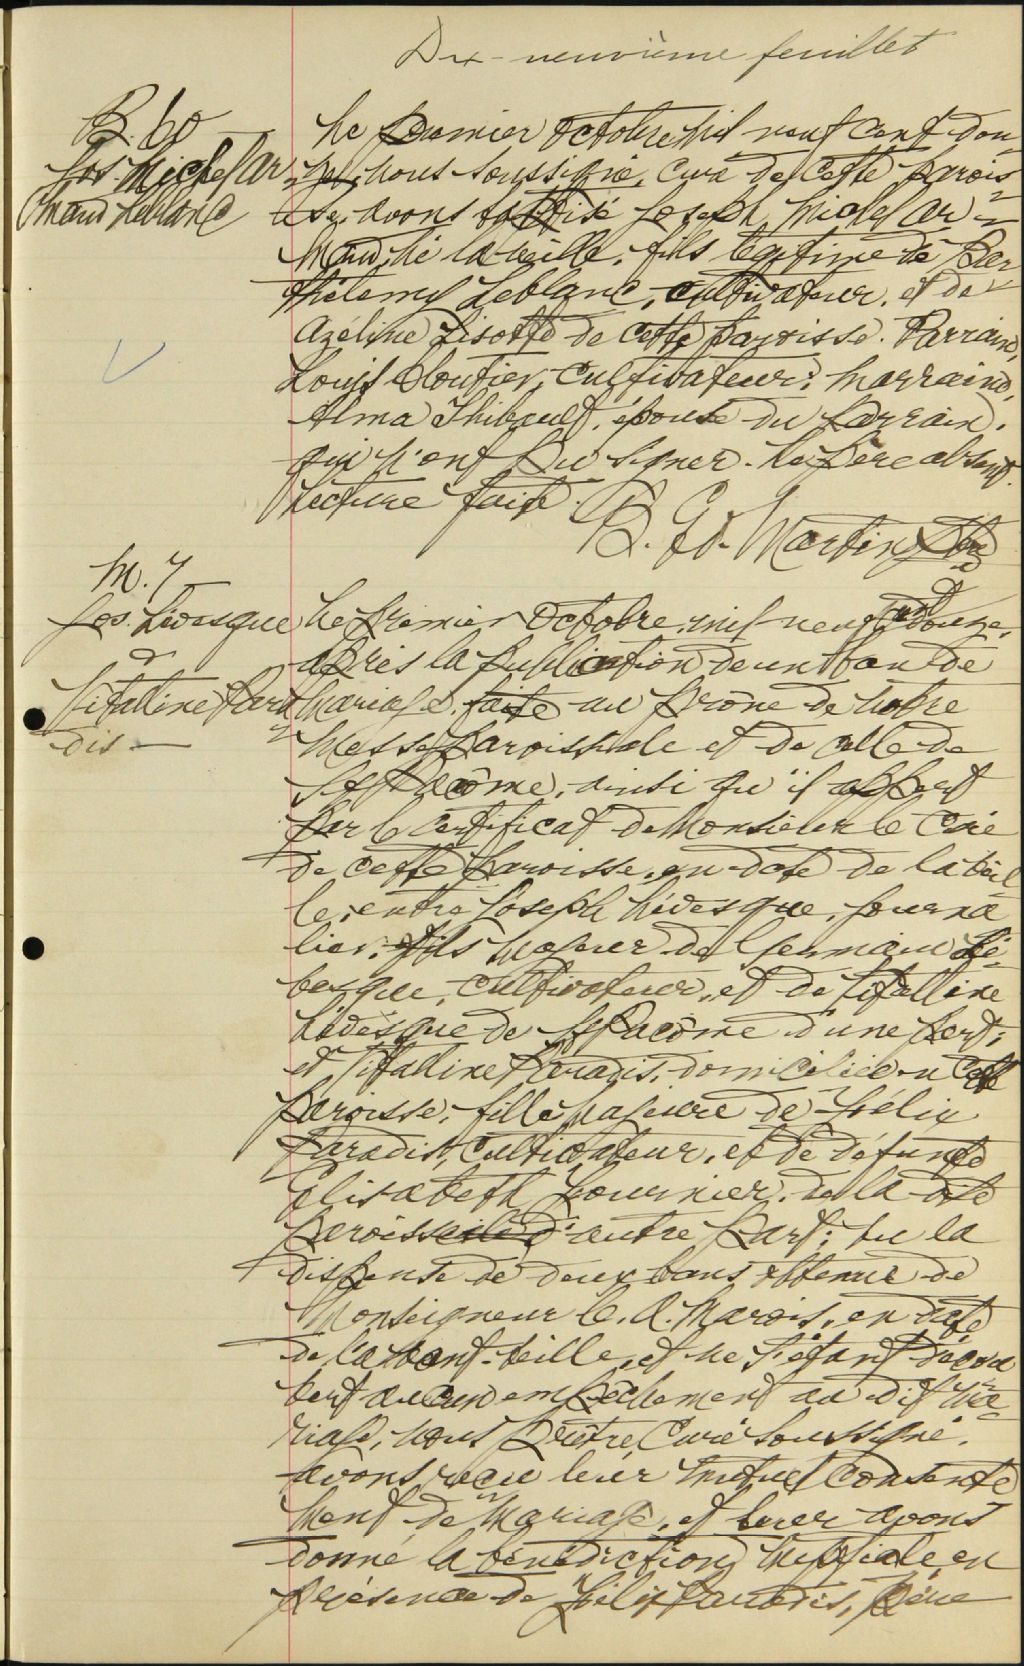 Dix-neuvième feuillet
B. 60
Jos. Michel Ar
mand Leblanc
Le premier octobre mil neuf cent dou-
ze, nous soussigné, curé de cette parois
se, avons baptisé Joseph Michel Ar-
mand, né la veille, fils légitime de Bar
thélemy Leblanc, cultivateur, et de
Azéline Lisotte de cette paroisse. Parrain,
Louis Cloutier, cultivateur; marraine,
Alma Thibault, épouse du parrain,
qui n'ont pu signer. Le père absent.
Lecture faite.
B. Ed. Martin, Ptre
M. 7
Jos. Lévesque
&
Vitalline Para
dis
Le premier octobre, mil neuf cent douze,
après la publication de un ban de
mariage faite au prône de notre
messe paroissiale et de celle de
St Pacôme, ainsi qu'il appert
par le certificat de Monsieur le Curé
de cette paroisse, en date de la veil
le, entre Joseph Lévesque, journa
lier, fils majeur de Germain Lé-
vesque, cultivateur, et de Vitalline
Lévesque de St Pacôme d'une part;
et Vitalline Paradis, domiciliée en cette
paroisse, fille majeure de Félix
Paradis, cultivateur, et de défunte
Elisabeth Fournier, de la dite
paroisse d'autre part; vu la
dispense de deux bans obtenue de
Monseigneur C. A. Marois, en date
de l'avant-veille, et ne s'étant décou
vert aucun empêchement au dit ma-
riage, nous Prêtre, Curé soussigné,
avons reçu leur mutuel consente
ment de mariage, et leur avons
donné la bénédiction nuptiale en
présence de Félix Paradis, père